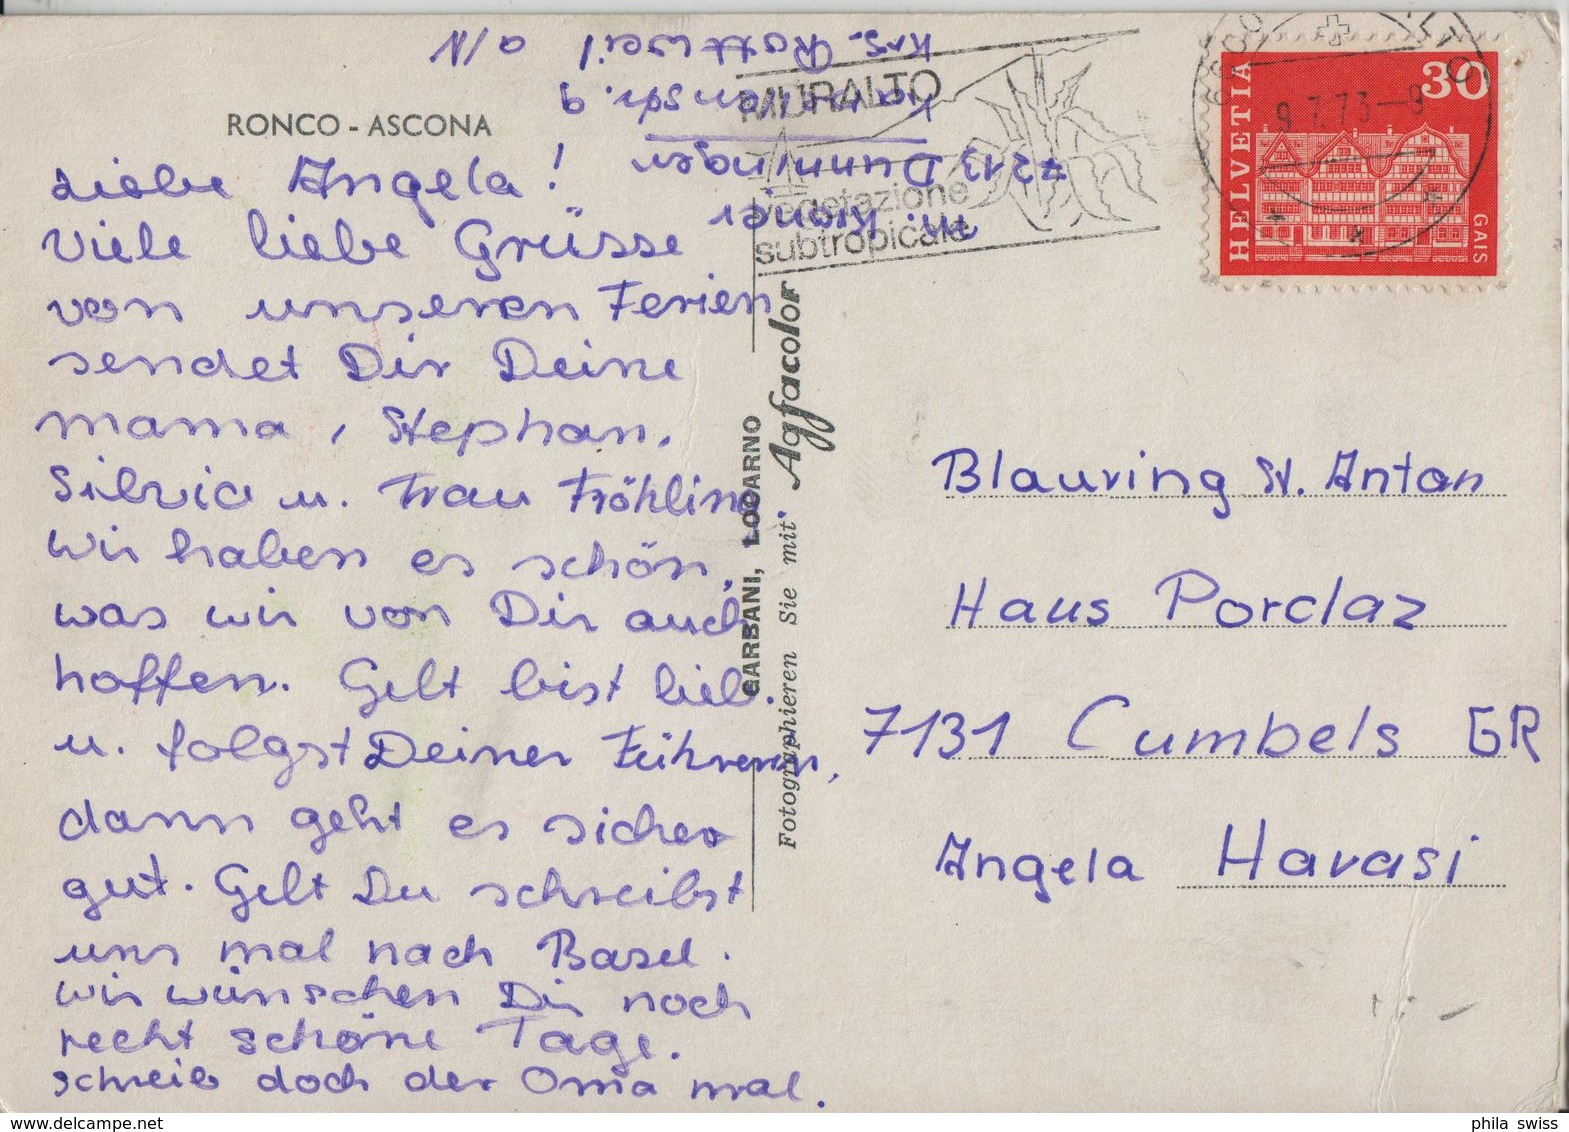 RONCO - ASCONA
Liebe Angela!
Viele liebe Grüsse
von unseren Ferien
sendet Dir Deine
Mama, Stephan,
Silvia u. Frau Fröhling
Wir haben es schön,
was wir von Dir auch
hoffen. Gelt bist lieb.
u. folgst Deiner Führerin,
dann geht es sicher
gut. Gelt Du schreibst
uns mal nach Basel.
Wir wünschen Dir noch
recht schöne Tage.
Schreib doch der Oma mal.
M. Kioner
7213 Dunningen
Krs. Rottweil a/N
MURALTO
vegetazione
subtropicale
9.7.73-9
HELVETIA
30
GAIS
GARBANI, LOCARNO
Fotographieren Sie mit Agfacolor
Blauring St. Anton
Haus Porclaz
7131 Cumbels GR
Angela Havasi
phila swiss